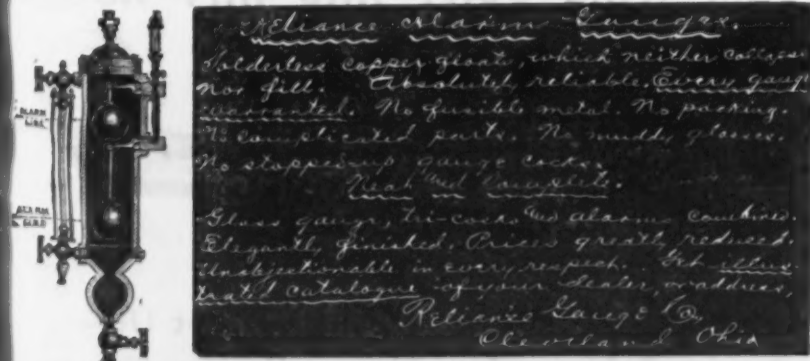 Reliance Alarm Gauges.
Solderless copper floats, which neither collapse
nor fill. Absolutely reliable. Every gauge
warranted. No fusible metal. No packing.
No complicated parts. No muddy glasses.
No stopped-up gauge cocks.
Neat and Complete.
Glass gauge, tri-cocks and alarms combined.
Elegantly finished. Prices greatly reduced.
Unobjectionable in every respect. Get illus-
trated catalogue of your dealer, or address,
Reliance Gauge Co,
Cleveland Ohio
ALARM
LINE
ALARM
LINE